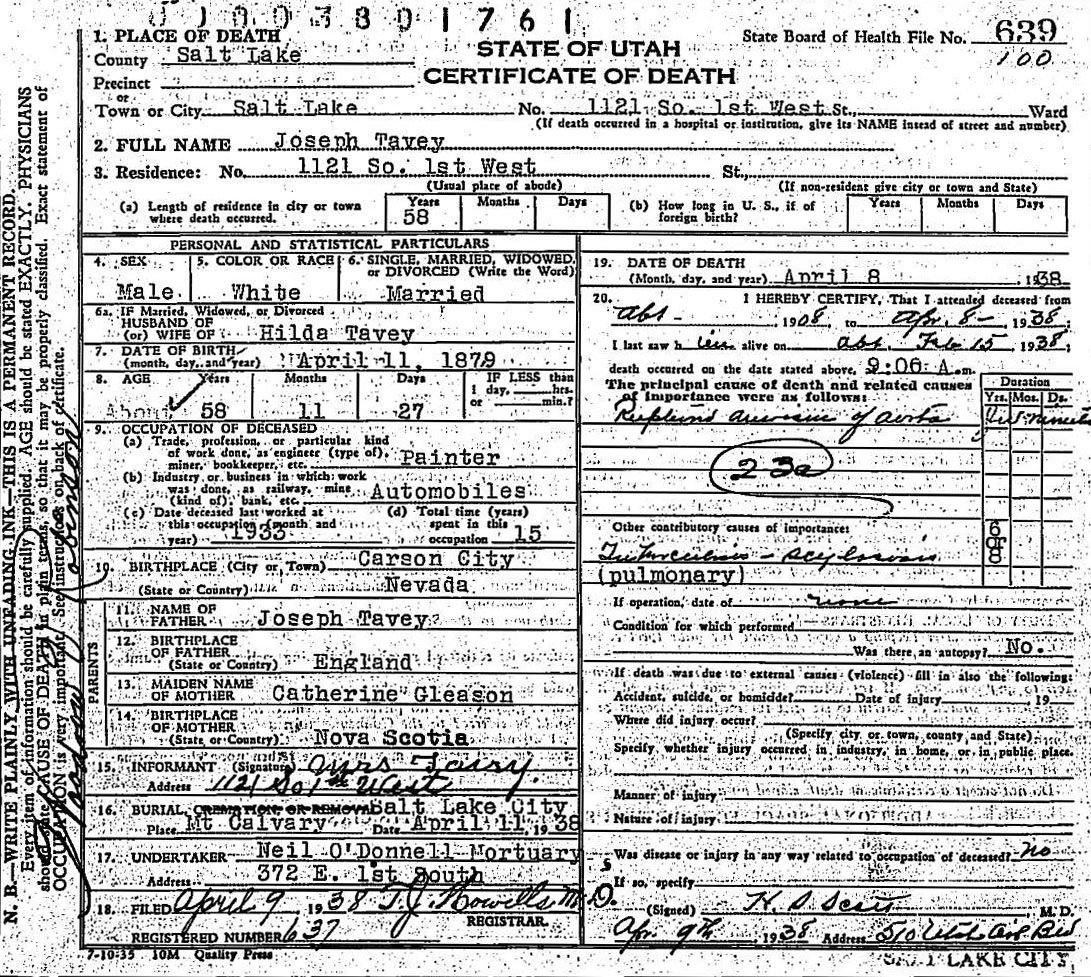 01003801761
1. PLACE OF DEATH
County Salt Lake
Precinct
or
Town or City Salt Lake
STATE OF UTAH
CERTIFICATE OF DEATH
State Board of Health File No. 639
100
No. 1121 So. 1st West St., Ward
(If death occurred in a hospital or institution, give its NAME instead of street and number)
2. FULL NAME Joseph Tavey
3. Residence: No. 1121 So. 1st West St.,
(Usual place of abode) (If non-resident give city or town and State)
(a) Length of residence in city or town where death occurred. Years 58 Months Days
(b) How long in U. S., if of foreign birth? Years Months Days
PERSONAL AND STATISTICAL PARTICULARS
4. SEX Male
5. COLOR OR RACE White
6. SINGLE, MARRIED, WIDOWED, or DIVORCED (Write the Word) Married
6a. IF Married, Widowed, or Divorced
HUSBAND OF
(or) WIFE OF Hilda Tavey
7. DATE OF BIRTH
(month, day, and year) April 11, 1879
8. AGE Years Months Days IF LESS than
1 day, hrs.
or min.?
About 58 11 27
9. OCCUPATION OF DECEASED
(a) Trade, profession, or particular kind
of work done, as engineer (type of),
miner, bookkeeper, etc. Painter
(b) Industry or business in which work
was done, as railway, mine
(kind of), bank, etc. Automobiles
(c) Date deceased last worked at
this occupation (month and
year) 1933
(d) Total time (years)
spent in this
occupation 15
10. BIRTHPLACE (City or Town) Carson City
(State or Country) Nevada
PARENTS
11. NAME OF
FATHER Joseph Tavey
12. BIRTHPLACE
OF FATHER
(State or Country) England
13. MAIDEN NAME
OF MOTHER Catherine Gleason
14. BIRTHPLACE
OF MOTHER
(State or Country) Nova Scotia
15. INFORMANT (Signature) Mrs Tavey.
Address 1121 So 1st West
16. BURIAL, CREMATION, OR REMOVAL Salt Lake City
Place Mt Calvary Date April 11, 1938
17. UNDERTAKER Neil O'Donnell Mortuary
Address 372 E. 1st South
18. FILED April 9 1938 T. J. Howells M.D.
REGISTRAR.
REGISTERED NUMBER 637
7-10-35 10M Quality Press
19. DATE OF DEATH
(Month, day, and year) April 8, 1938
20. I HEREBY CERTIFY, That I attended deceased from
Abt - , 1908, to Apr. 8 - 1938,
I last saw him alive on abt. Feb 15 1938,
death occurred on the date stated above, 9:06 A. m.
The principal cause of death and related causes
of importance were as follows:
Duration
Yrs. Mos. Ds.
of aorta
23a
Other contributory causes of importance:
Tuberculosis -
(pulmonary)
If operation, date of none
Condition for which performed
Was there an autopsy? No.
If death was due to external causes (violence) fill in also the following:
Accident, suicide, or homicide? Date of injury , 19
Where did injury occur?
(Specify city or town, county and State)
Specify whether injury occurred in industry, in home, or in public place.
Manner of injury
Nature of injury
Was disease or injury in any way related to occupation of deceased? no
If so, specify
(Signed) M. D.
Apr. 9th, 1938 Address
SALT LAKE CITY
N. B.—WRITE PLAINLY WITH UNFADING INK—THIS IS A PERMANENT RECORD.
Every item of information should be carefully supplied. AGE should be stated EXACTLY. PHYSICIANS
should state CAUSE OF DEATH in plain terms, so that it may be properly classified. Exact statement of
OCCUPATION is very important. See instructions on back of certificate.